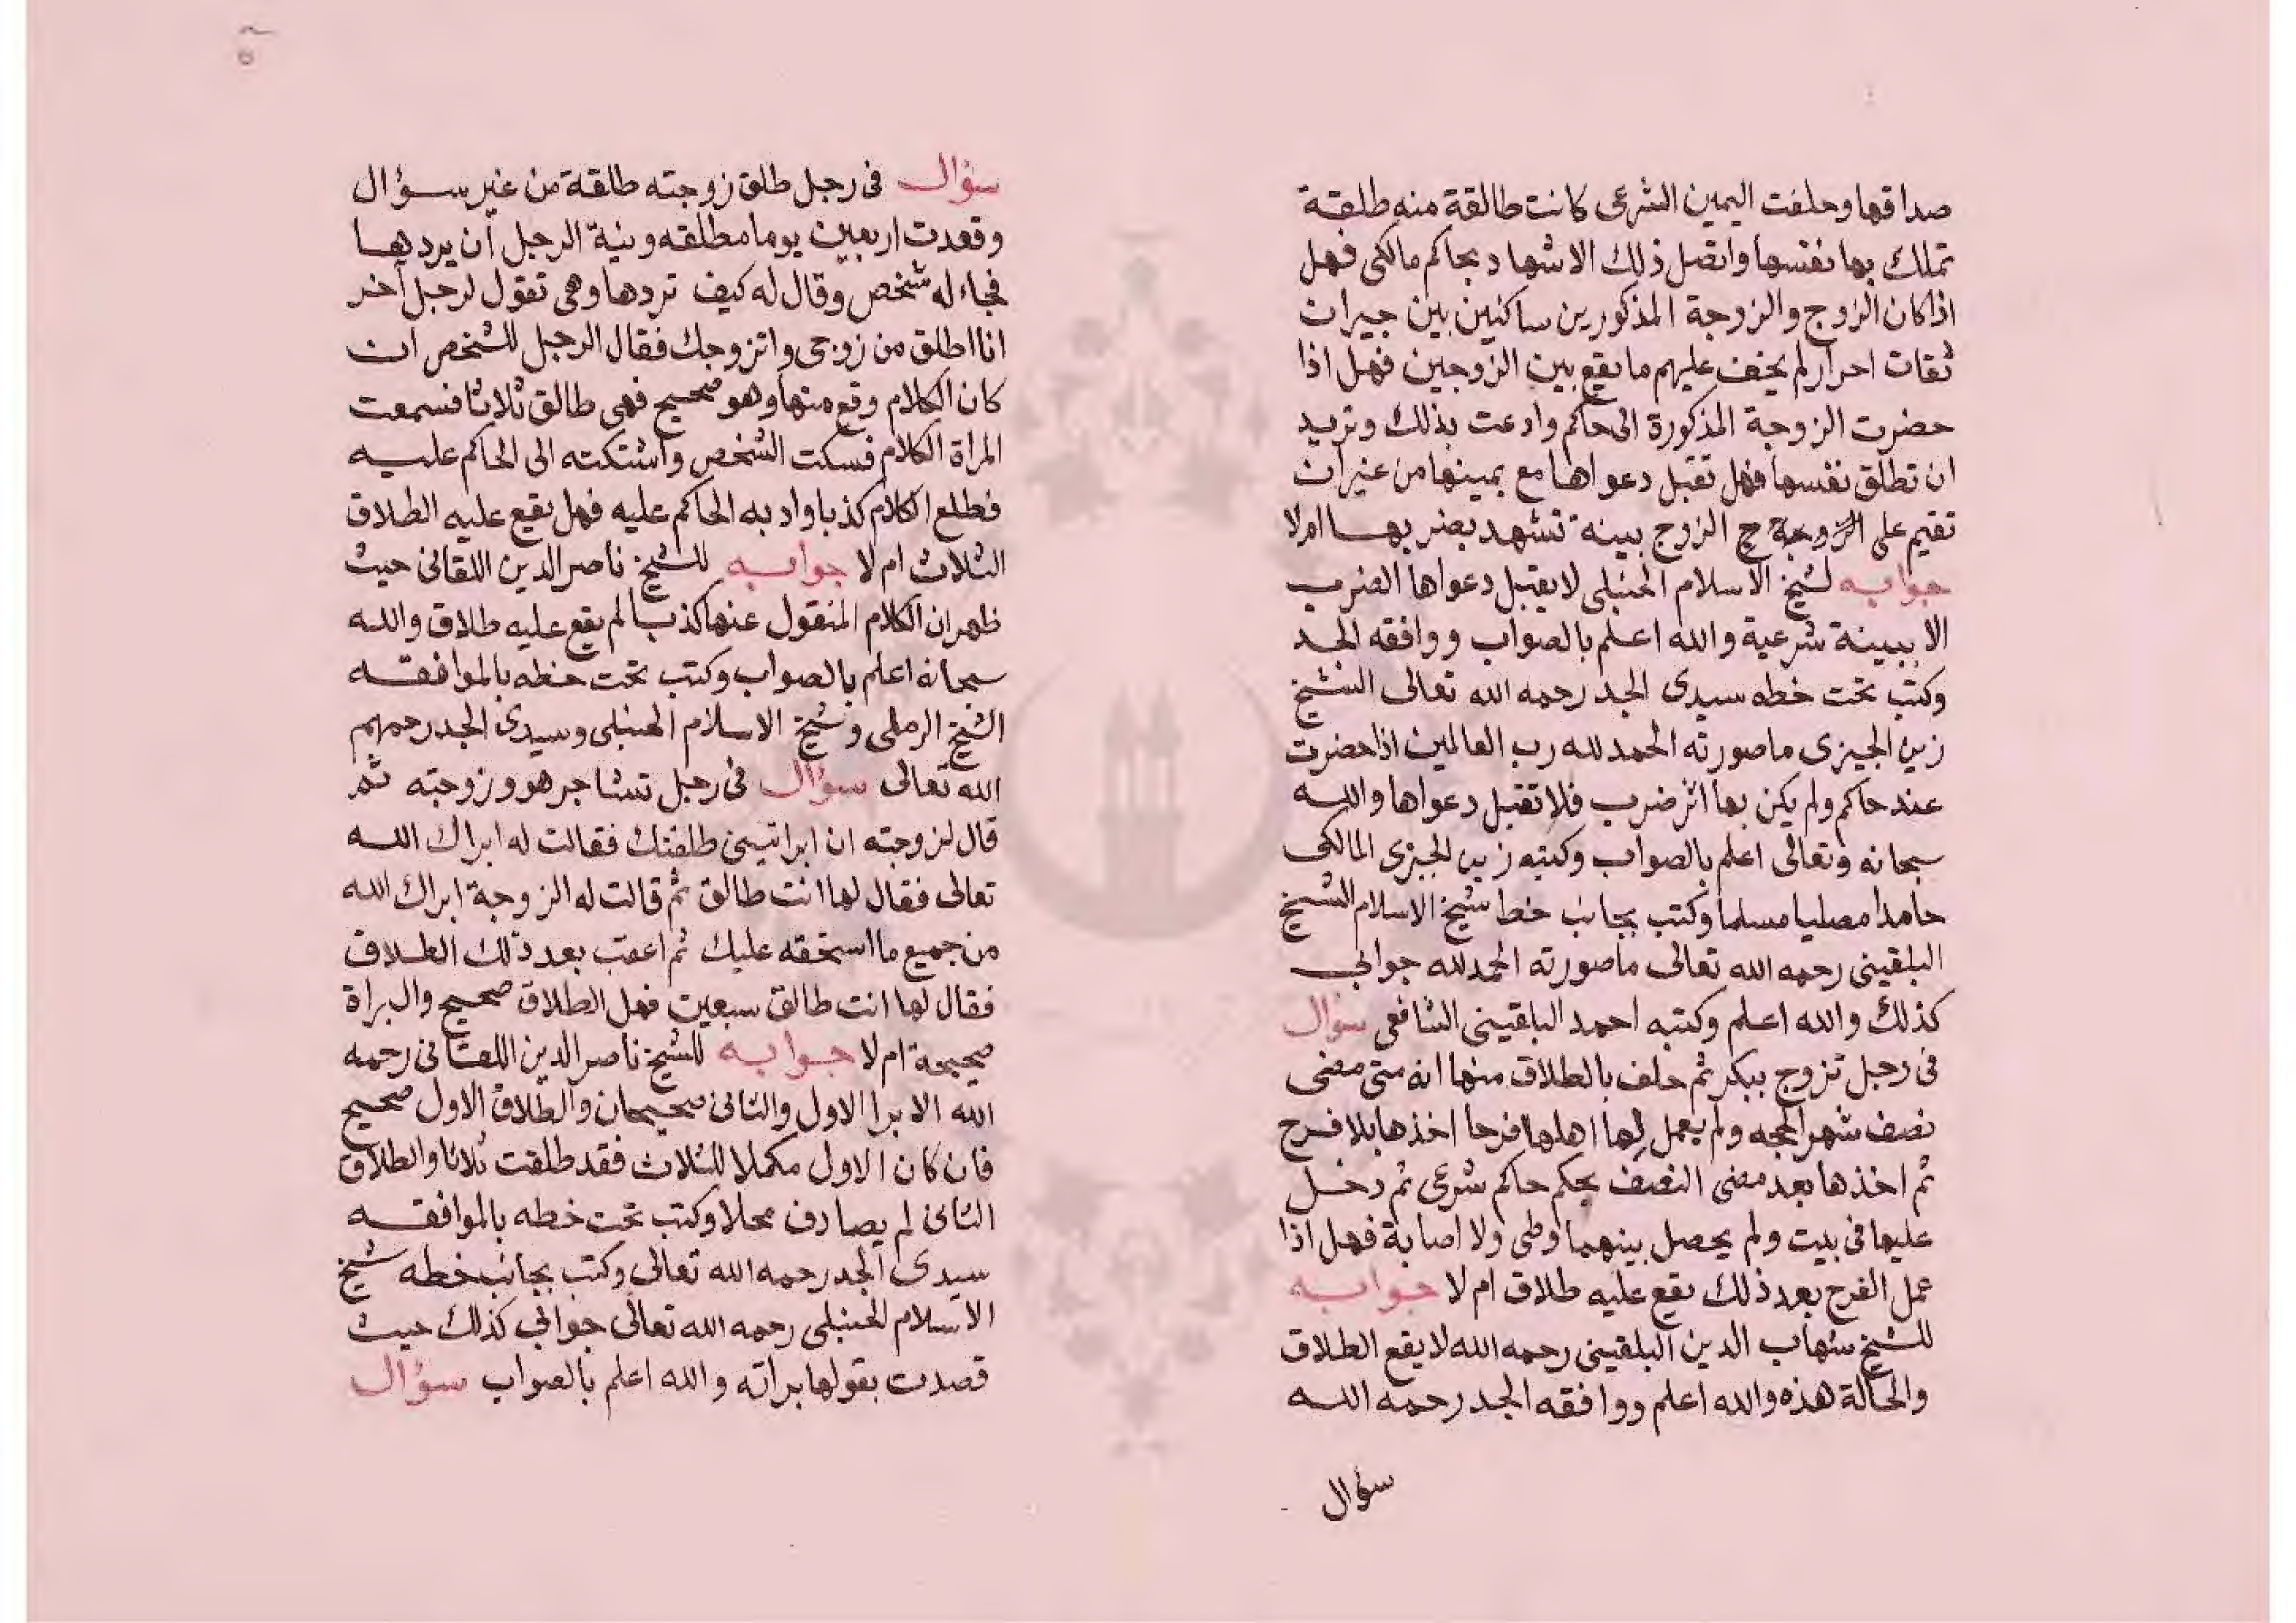 صداقها وحلفت اليمين الشرعى كانت طالقة منه طلقة
تملك بها نفسها واتصل ذلك الاشهاد بحاكم مالكى فهل
اذا كان الزوج والزوجة المذكورين ساكنين بين جيران
ثقات احرار لم يخف عليهم ما يقع بين الزوجين فهل اذا
حضرت الزوجة المذكورة الى حاكم وادعت بذلك وتريد
ان تطلق نفسها فهل تقبل دعواها مع يمينها من غير ان
تقيم على الزوج بينة تشهد بضربها ام لا
جوابه لشيخ الاسلام الحنبلى لا يقبل دعواها الضرب
الا ببينة شرعية والله اعلم بالصواب ووافقه الجد
وكتب تحت خطه سيدى الجد رحمه الله تعالى الشيخ
زين الجيزى ما صورته الحمد لله رب العالمين اذا حضرت
عند حاكم ولم يكن بها اثر ضرب فلا تقبل دعواها والله
سبحانه وتعالى اعلم بالصواب وكتبه زين الجيزى المالكى
حامدا مصليا مسلما وكتب بجانب خط شيخ الاسلام الشيخ
البلقينى رحمه الله تعالى ما صورته الحمد لله جوابى
كذلك والله اعلم وكتبه احمد البلقينى الشافعى سؤال
فى رجل تزوج ببكر ثم حلف بالطلاق منها انه متى مضى
نصف شهر الحجه ولم يعمل لها اهلها فرحا اخذها بلا فرح
ثم اخذها بعد مضى النصف بحكم حاكم شرعى ثم دخل
عليها فى بيت ولم يحصل بينهما وطى ولا اصابة فهل اذا
عمل الفرح بعد ذلك يقع عليه طلاق ام لا جوابه
للشيخ شهاب الدين البلقينى رحمه الله لا يقع الطلاق
والحالة هذه والله اعلم ووافقه الجد رحمه الله
سؤال
سؤال فى رجل طلق زوجته طلقة من غير سؤال
وقعدت اربعين يوما مطلقه ونية الرجل أن يردها
فجاء له شخص وقال له كيف تردها وهى تقول لرجل آخر
انا اطلق من زوجى واتزوجك فقال الرجل للشخص ان
كان الكلام وقع منها وهو صحيح فهى طالق ثلاثا فسمعت
المراة الكلام فسكت الشخص واشتكته الى الحاكم عليه
فطلع الكلام كذبا وادبه الحاكم عليه فهل يقع عليه الطلاق
الثلاث ام لا جوابه للشيخ ناصر الدين اللقانى حيث
ظهر ان الكلام المنقول عنها كذب لم يقع عليه طلاق والله
سبحانه اعلم بالصواب وكتب تحت خطه بالموافقه
الشيخ الرملى وشيخ الاسلام الحنبلى وسيدى الجد رحمهم
الله تعالى سؤال فى رجل تشاجر هو وزوجته ثم
قال لزوجته ان ابراتينى طلقتك فقالت له ابراك الله
تعالى فقال لها انت طالق ثم قالت له الزوجة ابراك الله
من جميع ما استحقه عليك ثم اعقب بعد ذلك الطلاق
فقال لها انت طالق سبعين فهل الطلاق صحيح والبراة
صحيحة ام لا جوابه للشيخ ناصر الدين اللقانى رحمه
الله الابرا الاول والثانى صحيحان والطلاق الاول صحيح
فان كان الاول مكملا للثلاث فقد طلقت ثلاثا والطلاق
الثانى لم يصادف محلا وكتب تحت خطه بالموافقه
سيدى الجد رحمه الله تعالى وكتب بجانب خطه شيخ
الاسلام الحنبلى رحمه الله تعالى جوابى كذلك حيث
قصدت بقولها براته والله اعلم بالصواب سؤال